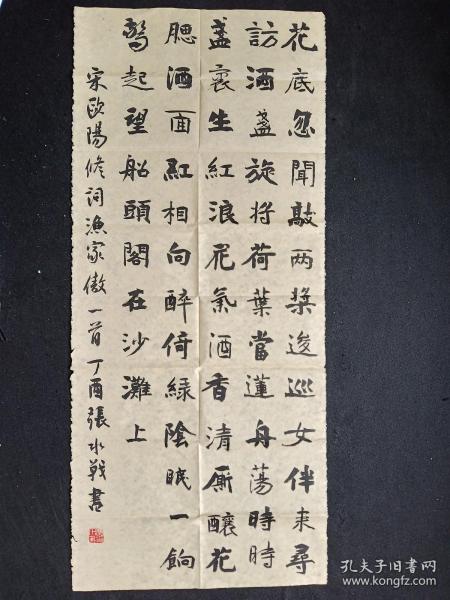 花底忽聞敲两槳逡巡女伴来尋
訪酒盞旋将荷葉當蓮舟蕩時時
盞裏生紅浪花氣酒香清厮釀花
腮酒面紅相向醉倚緑陰眠一餉
驚起望船頭閣在沙灘上
宋歐陽修詞漁家傲一首丁酉張水戰書
孔夫子旧书网